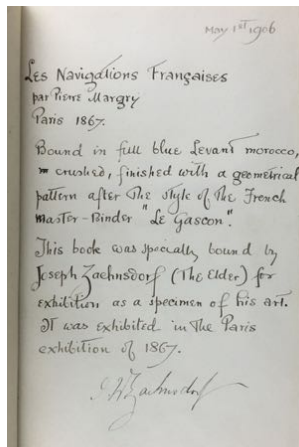 May 1st 1906
Les Navigations Françaises
par Pierre Margry
Paris 1867.
Bound in full blue Levant morocco,
crushed, finished with a geometrical
pattern after the style of the French
master-binder "Le Gascon".
This book was specially bound by
Joseph Zaehnsdorf (The Elder) for
exhibition as a specimen of his art.
It was exhibited in the Paris
exhibition of 1867.
Zaehnsdorf